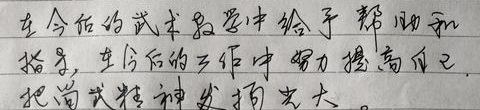 在今后的武术教学中给予帮助和
指导,在今后的工作中努力提高自己.
把尚武精神发扬光大。